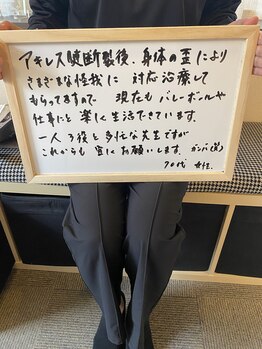 アキレス腱断裂後、身体の歪により
さまざまな怪我に 対応治療して
もらってますので 現在も バレーボールや
仕事にと 楽しく生活できています。
一人3役と多忙な先生ですが
これからも 宜しくお願いします。ガンバ(笑)
70代 女性